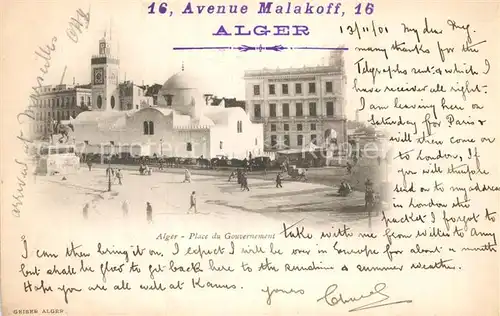 16, Avenue Malakoff, 16
ALGER
13/11/01 My dear
many thanks for the
Telegraphs sent & which I
have received all right.
I am leaving here on
Saturday for Paris &
will then come on
to London, If
you will therefore
send on to my address
in London the
packet I forgot to
take with me from Willes to Amy
I can then bring it on. I expect I will be over in Europe for about a month
but shall be glad to get back here to the sunshine & summer weather.
Hope you are all well at
yours
Alger - Place du Gouvernement
GEISER ALGER.